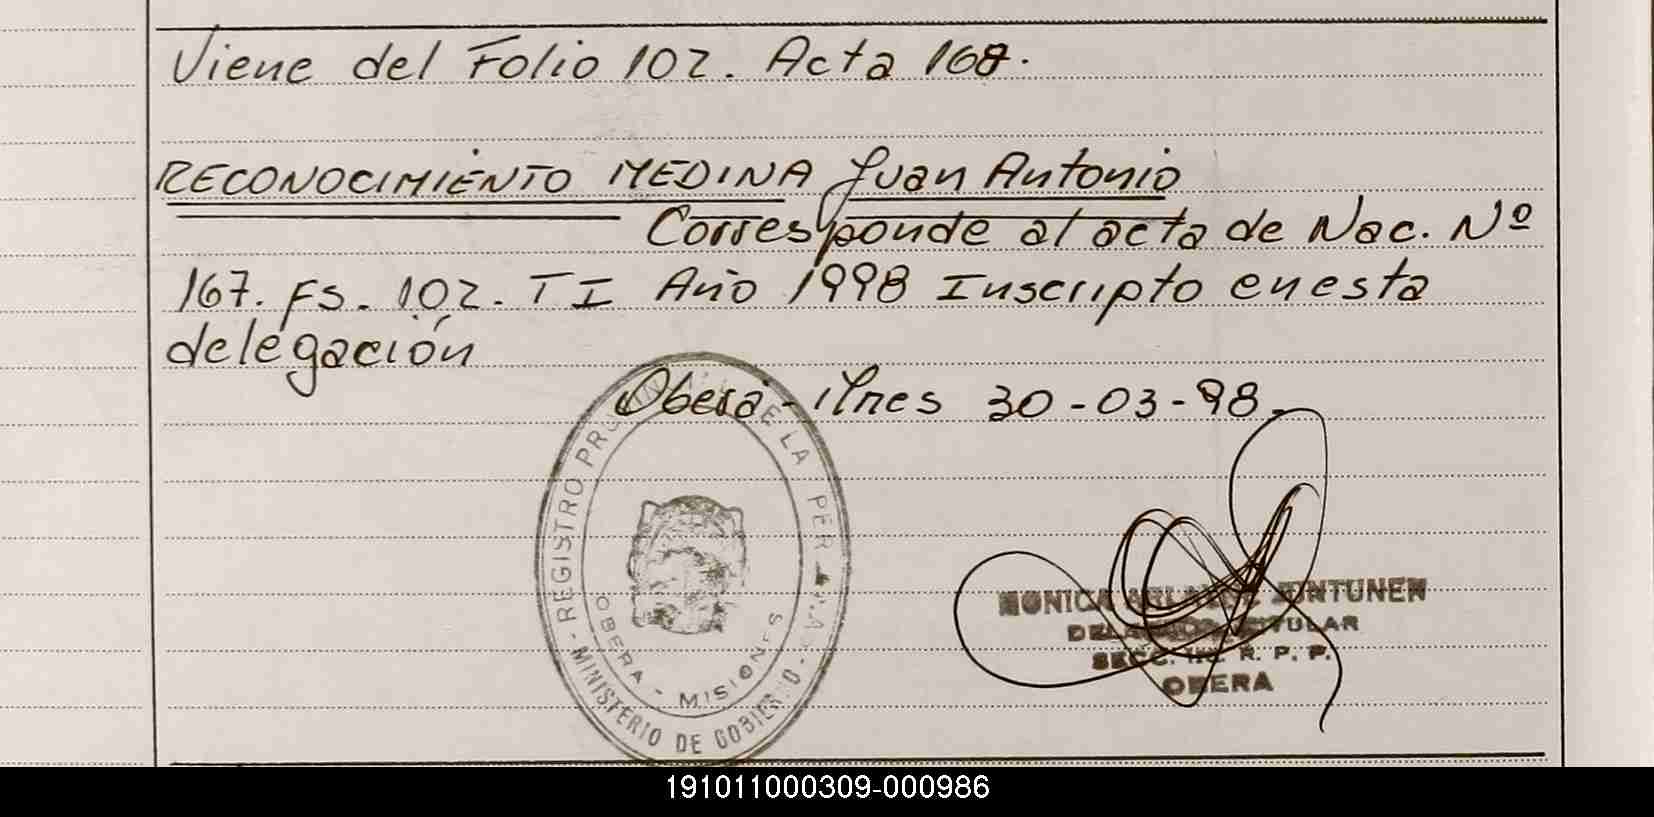 Viene del Folio 102. Acta 168.
RECONOCIMIENTO MEDINA Juan Antonio
Corresponde al acta de Nac. Nº
167. Fs. 102. T I Año 1998 Inscripto en esta
delegación
Oberá - Mnes 30-03-98.
REGISTRO PROVINCIAL DE LA PERSONAS
OBERA - MISIONES
- MINISTERIO DE GOBIERNO -
MONICA JUNTUNEN
DELEGADA TITULAR
SECC. R. P. P.
OBERA
191011000309-000986